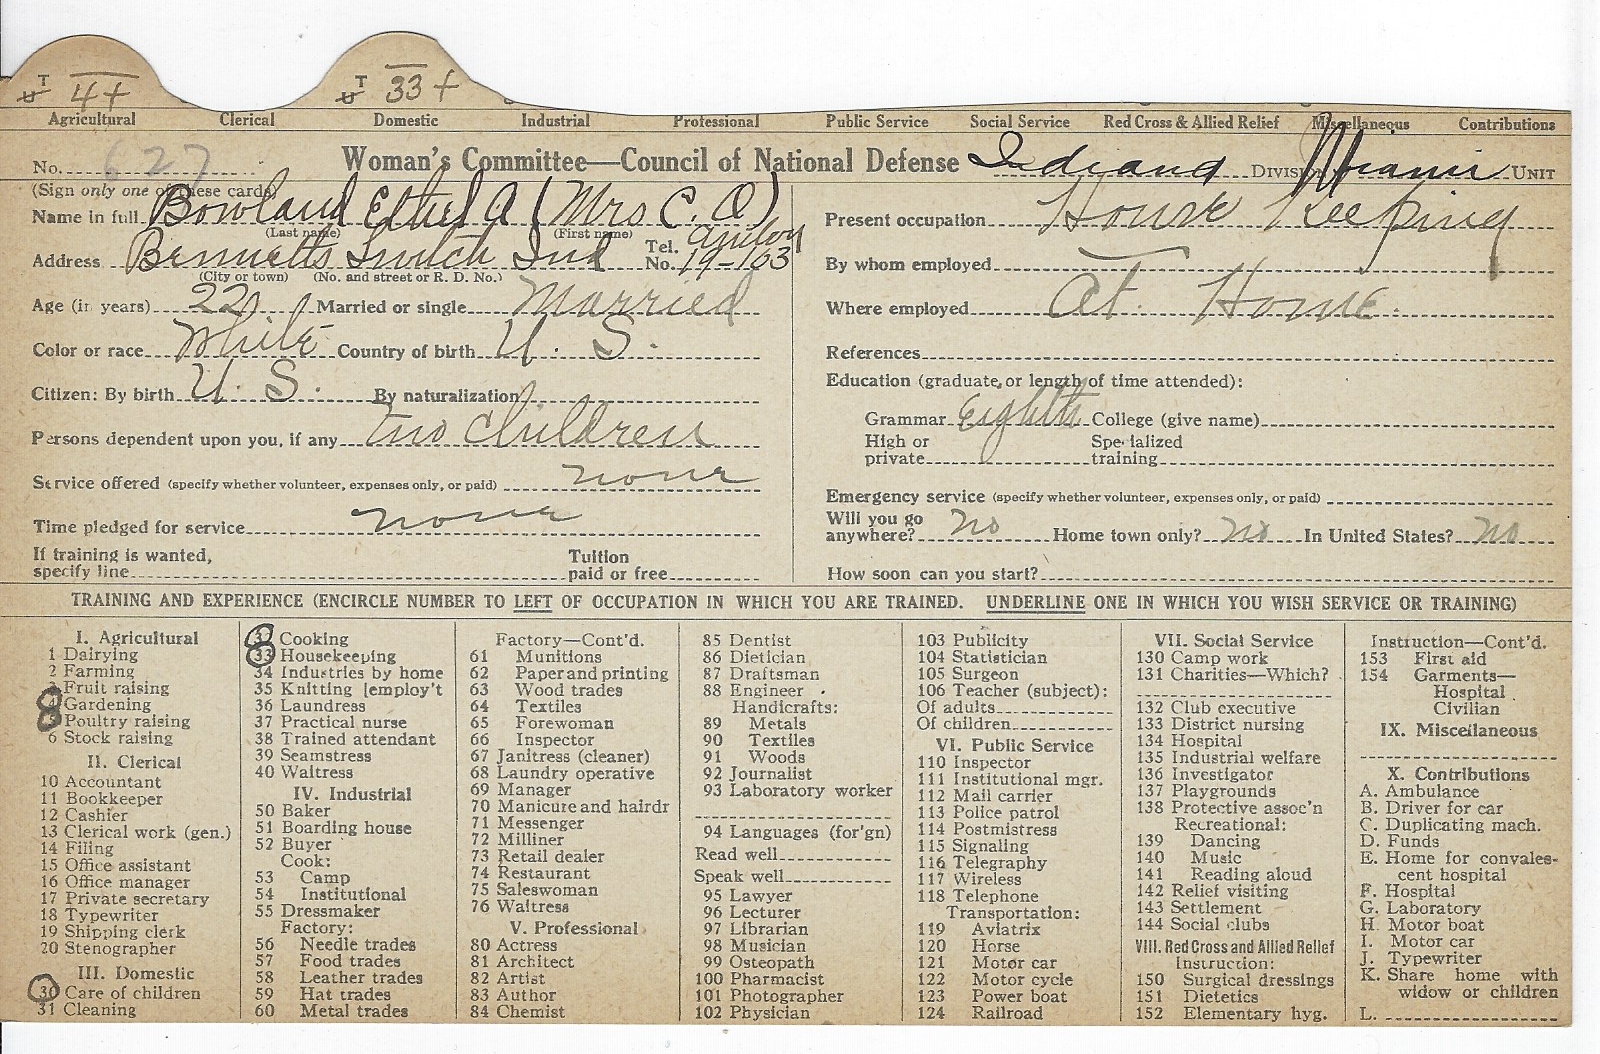 T U 4+ T U 33+
Agricultural Clerical Domestic Industrial Professional Public Service Social Service Red Cross & Allied Relief Miscellaneous Contributions
No. 627 Woman's Committee—Council of National Defense Indiana Division Miami Unit
(Sign only one of these cards)
Name in full Bowland Ethel A (Mrs C. O)
(Last name) (First name)
Address Bennetts Switch Ind Tel. No. 19-163
(City or town) (No. and street or R. D. No.)
Age (in years) 22 Married or single Married
Color or race White Country of birth U. S.
Citizen: By birth U. S. By naturalization
Persons dependent upon you, if any Two Children
Service offered (specify whether volunteer, expenses only, or paid) none
Time pledged for service none
If training is wanted, specify line Tuition paid or free
Present occupation House Keeping
By whom employed
Where employed At Home
References
Education (graduate, or length of time attended):
Grammar Eighth College (give name)
High or private Specialized training
Emergency service (specify whether volunteer, expenses only, or paid)
Will you go anywhere? no Home town only? no In United States? no
How soon can you start?
TRAINING AND EXPERIENCE (ENCIRCLE NUMBER TO LEFT OF OCCUPATION IN WHICH YOU ARE TRAINED. UNDERLINE ONE IN WHICH YOU WISH SERVICE OR TRAINING)
I. Agricultural
1 Dairying
2 Farming
3 Fruit raising
4 Gardening
5 Poultry raising
6 Stock raising
II. Clerical
10 Accountant
11 Bookkeeper
12 Cashier
13 Clerical work (gen.)
14 Filing
15 Office assistant
16 Office manager
17 Private secretary
18 Typewriter
19 Shipping clerk
20 Stenographer
III. Domestic
30 Care of children
31 Cleaning
32 Cooking
33 Housekeeping
34 Industries by home
35 Knitting [employ't
36 Laundress
37 Practical nurse
38 Trained attendant
39 Seamstress
40 Waitress
IV. Industrial
50 Baker
51 Boarding house
52 Buyer
Cook:
53 Camp
54 Institutional
55 Dressmaker
Factory:
56 Needle trades
57 Food trades
58 Leather trades
59 Hat trades
60 Metal trades
Factory—Cont'd.
61 Munitions
62 Paper and printing
63 Wood trades
64 Textiles
65 Forewoman
66 Inspector
67 Janitress (cleaner)
68 Laundry operative
69 Manager
70 Manicure and hairdr
71 Messenger
72 Milliner
73 Retail dealer
74 Restaurant
75 Saleswoman
76 Waitress
V. Professional
80 Actress
81 Architect
82 Artist
83 Author
84 Chemist
85 Dentist
86 Dietician
87 Draftsman
88 Engineer
Handicrafts:
89 Metals
90 Textiles
91 Woods
92 Journalist
93 Laboratory worker
94 Languages (for'gn)
Read well
Speak well
95 Lawyer
96 Lecturer
97 Librarian
98 Musician
99 Osteopath
100 Pharmacist
101 Photographer
102 Physician
103 Publicity
104 Statistician
105 Surgeon
106 Teacher (subject):
Of adults
Of children
VI. Public Service
110 Inspector
111 Institutional mgr.
112 Mail carrier
113 Police patrol
114 Postmistress
115 Signaling
116 Telegraphy
117 Wireless
118 Telephone
Transportation:
119 Aviatrix
120 Horse
121 Motor car
122 Motor cycle
123 Power boat
124 Railroad
VII. Social Service
130 Camp work
131 Charities—Which?
132 Club executive
133 District nursing
134 Hospital
135 Industrial welfare
136 Investigator
137 Playgrounds
138 Protective assoc'n
Recreational:
139 Dancing
140 Music
141 Reading aloud
142 Relief visiting
143 Settlement
144 Social clubs
VIII. Red Cross and Allied Relief
Instruction:
150 Surgical dressings
151 Dietetics
152 Elementary hyg.
Instruction—Cont'd.
153 First aid
154 Garments—
Hospital
Civilian
IX. Miscellaneous
X. Contributions
A. Ambulance
B. Driver for car
C. Duplicating mach.
D. Funds
E. Home for convales-
cent hospital
F. Hospital
G. Laboratory
H. Motor boat
I. Motor car
J. Typewriter
K. Share home with
widow or children
L.